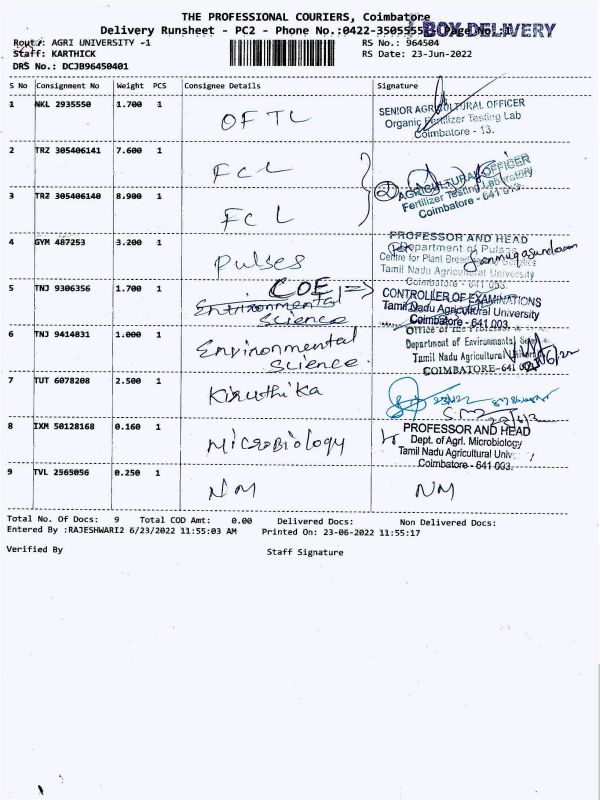 THE PROFESSIONAL COURIERS, Coimbatore
Delivery Runsheet - PC2 - Phone No.:0422-3505555
BOX DELIVERY
Route: AGRI UNIVERSITY -1
RS No.: 964504
Staff: KARTHICK
RS Date: 23-Jun-2022
DRS No.: DCJB96450401
S No Consignment No Weight PCS Consignee Details Signature
1 NKL 2935550 1.700 1 OFTL
SENIOR AGRICULTURAL OFFICER
Organic Fertilizer Testing Lab
Coimbatore - 13.
2 TRZ 305406141 7.600 1 FCL
3 TRZ 305406140 8.900 1 FCL
AGRICULTURAL OFFICER
Fertilizer Testing Laboratory
Coimbatore - 641 013.
4 GYM 487253 3.200 1 Pulses
PROFESSOR AND HEAD
Department of Pulses
Centre for Plant
Tamil Nadu Agricultural University
Coimbatore - 641 003.
5 TNJ 9306356 1.700 1 COE
Environmental
Science
CONTROLLER OF EXAMINATIONS
Tamil Nadu Agricultural University
Coimbatore - 641 003
6 TNJ 9414831 1.000 1 Environmental
Science.
Office of the Professor
Department of Environmental
Tamil Nadu Agricultural
COIMBATORE-641
7 TUT 6078208 2.500 1 Kiruthika
8 IXM 50128168 0.160 1 Microbiology
PROFESSOR AND HEAD
Dept. of Agrl. Microbiology
Tamil Nadu Agricultural
Coimbatore - 641 003.
9 TVL 2565056 0.250 1 NM NM
Total No. Of Docs: 9 Total COD Amt: 0.00 Delivered Docs: Non Delivered Docs:
Entered By :RAJESHWARI2 6/23/2022 11:55:03 AM Printed On: 23-06-2022 11:55:17
Verified By Staff Signature